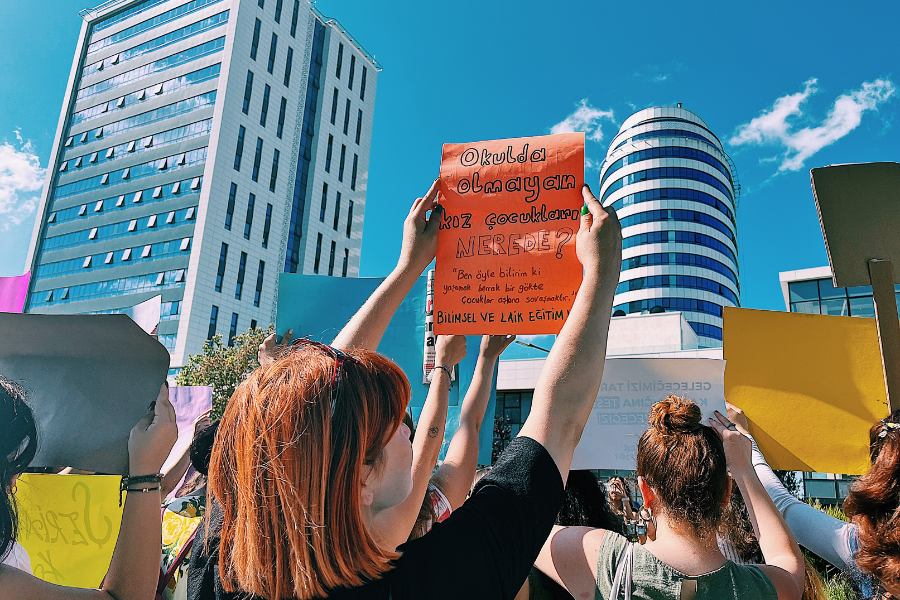 Okulda
olmayan
kız çocukları
NEREDE?
"Ben öyle bilirim ki
yaşamak berrak bir gökte
çocuklar aşkına savaşmaktır."
BİLİMSEL VE LAİK EĞİTİM
GELECEĞİMİZİ